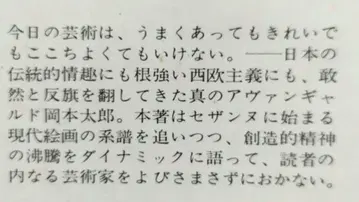 今日の芸術は、うまくあってもきれいで
もここちよくてもいけない。――日本の
伝統的情趣にも根強い西欧主義にも、敢
然と反旗を翻してきた真のアヴァンギャ
ルド岡本太郎。本著はセザンヌに始まる
現代絵画の系譜を追いつつ、創造的精神
の沸騰をダイナミックに語って、読者の
内なる芸術家をよびさまさずにおかない。